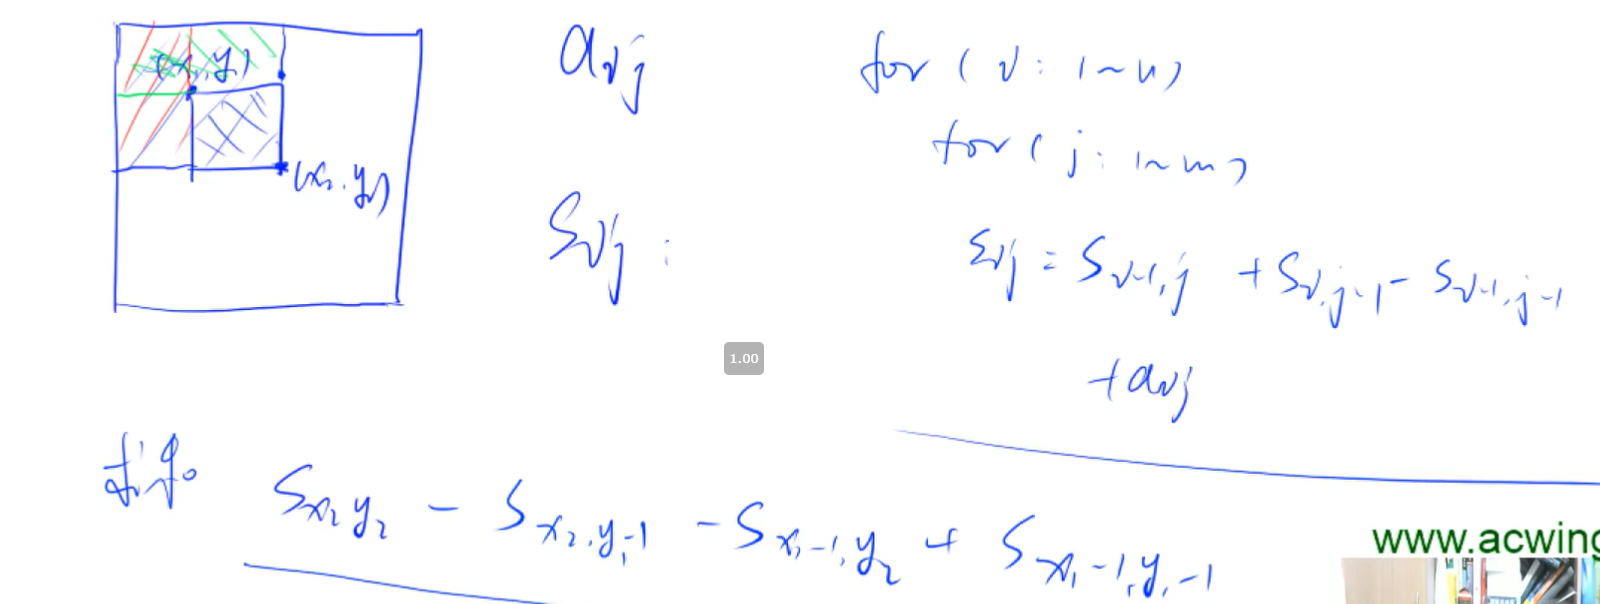 (x₁, y₁)
(x₂, y₂)
aᵢⱼ
for (i: 1~n)
for (j: 1~m)
Sᵢⱼ:
Sᵢⱼ = Sᵢ₋₁,ⱼ + Sᵢ,ⱼ₋₁ - Sᵢ₋₁,ⱼ₋₁
+ aᵢⱼ
1.00
S_{x₂ y₂} - S_{x₂, y₁-1} - S_{x₁-1, y₂} + S_{x₁-1, y₁-1}
www.acwing